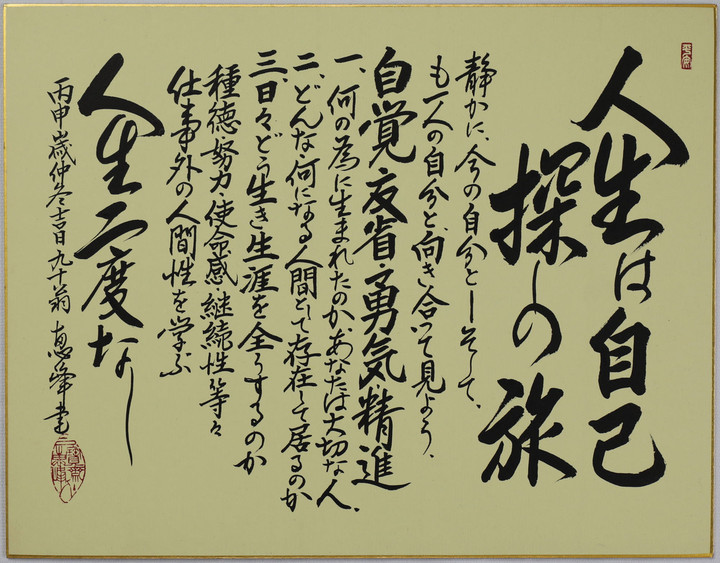 人生は自己
探しの旅
静かに、今の自分と―そして、
も一人の自分と、向き合って見よう、
自覚・反省・勇気・精進
一、何の為に生まれたのか、あなたは大切な人、
二、どんな、何になる人間として存在して居るのか
三、日々どう生き生涯を全うするのか
種徳・努力・使命感・継続性等々
仕事外の人間性を学ぶ
人生二度なし
丙申歳仲冬吉日九十翁 恵峰書